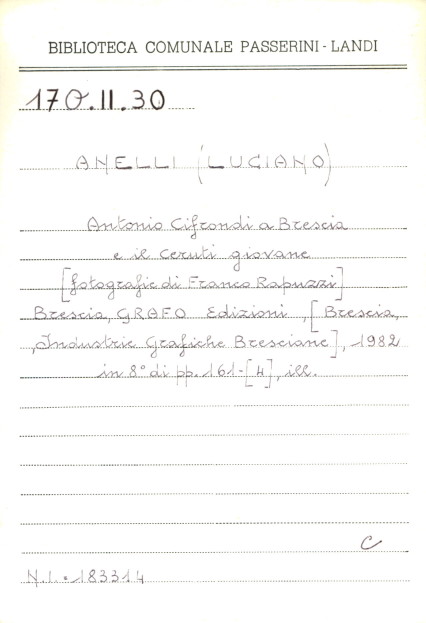 BIBLIOTECA COMUNALE PASSERINI - LANDI
170.II.30
ANELLI (LUCIANO)
Antonio Cifrondi a Brescia
e il Ceruti giovane
[fotografie di Franco Rapuzzi]
Brescia, GRAFO Edizioni, [Brescia,
,Industrie Grafiche Bresciane], 1982
in 8° di pp. 161-[4], ill.
C
N.I. 183314